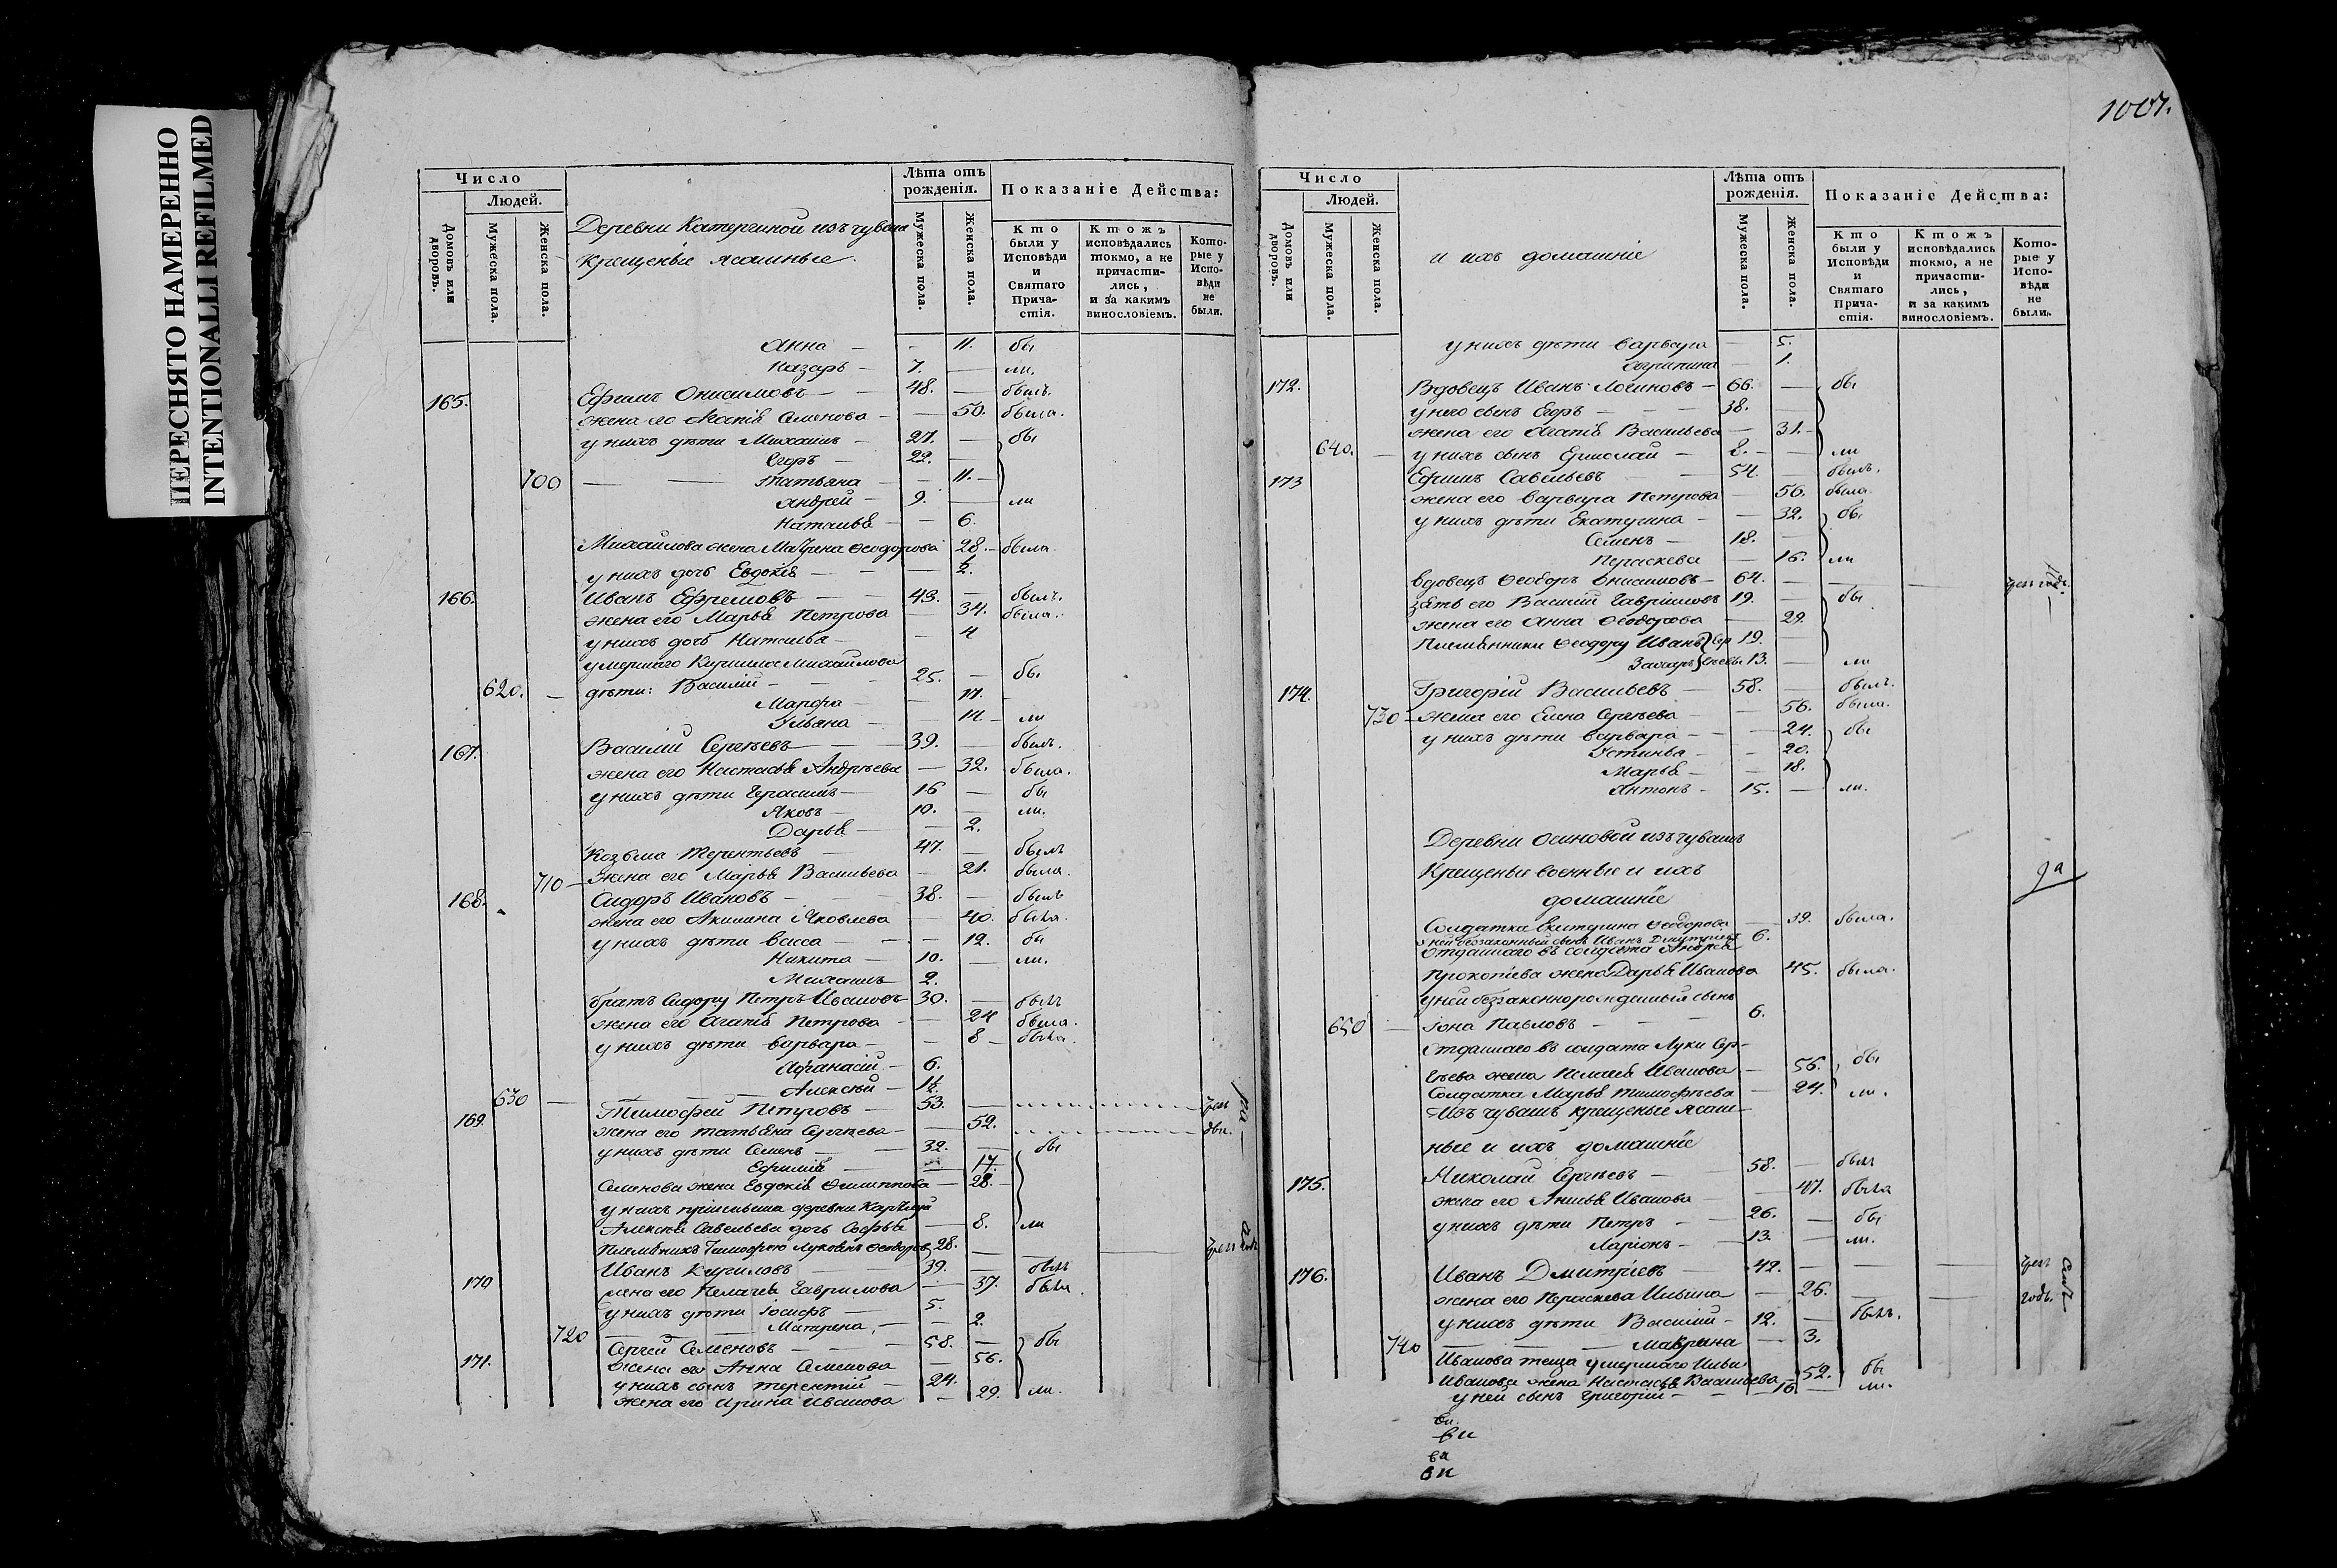 ПЕРЕСНЯТО НАМЕРЕННО
INTENTIONALLI REFILMED
Число
Людей.
Домовъ или дворовъ.
Мужеска пола.
Женска пола.
Деревни Катергиной изъ чувашъ
крещеные ясашные
Лѣта отъ рожденія.
Мужеска пола.
Женска пола.
Показаніе Действа:
Кто были у Исповѣди и Святаго Прича-стія.
Ктожъ исповѣдались токмо, а не причасти-лись, и за какимъ винословіемъ.
Кото-рые у Испо-вѣди не были.
Анна — - 11. бы
Назаръ — 7. — ли.
165. Ефимъ Онисимовъ — 48. — былъ.
жена его Агапія Семенова — — 50. была.
у нихъ дѣти Михаилъ — 27. — бы
Егоръ — 22. —
700 — Татьяна — - 11. —
Андрей — 9. — ли
Наталья — — 6.
Михайлова жена Матрена Ѳеодорова 28. — была.
у нихъ дочь Евдокія — — —
166. Иванъ Ефремовъ — 43. — былъ.
жена его Марья Петрова — 34. была.
у нихъ дочь Наталья — — 4
умершаго Михайлова
620. — дѣти: Василій — 25. — бы
Марфа —
Ульяна — — ли
167. Василій Сергѣевъ — 39. — былъ.
жена его Настасья Андрѣева — 32. была.
у нихъ дѣти Герасимъ — 16 — бы
Яковъ — 10. — ли.
Дарья — — 2.
Козьма Терентьевъ — 47. — былъ
710 — жена его Марья Васильева — 21. была.
168. Сидоръ Ивановъ — 38. — былъ
жена его Акилина Яковлева — 40. была.
у нихъ дѣти Васса — — 12. бы
Никита — 10. — ли.
Михаилъ 2.
братъ Сидору Петръ Ивановъ 30. — былъ
жена его Агапія Петрова — — 24 была.
у нихъ дѣти Варвара — — 8 — была.
Афанасій — 6.
630 — Алексѣй —
169. Тимофей Петровъ — 53. —
жена его Татьяна Сергѣева — — 52.
у нихъ дѣти Семенъ — 32. — бы
Ефимія — — 17.
Семенова жена Евдокія Филиппова — 28. —
у нихъ деревни
Алексѣя Савельева дочь Софья — 8. ли
Племянникъ Тимофею Ѳеодоровъ 28. —
170 Иванъ Кириловъ — 39. — былъ
жена его Пелагея Гаврилова — 37. была.
у нихъ дѣти Іосифъ — 5.
720 — — 2.
171. Сергей Семеновъ — 58. — бы
жена его Анна Семенова — 56.
у нихъ сынъ Терентій — 24.
жена его Ирина Иванова — 29. ли.
1007.
Число
Людей.
Домовъ или дворовъ.
Мужеска пола.
Женска пола.
и ихъ домашніе
Лѣта отъ рожденія.
Мужеска пола.
Женска пола.
Показаніе Действа:
Кто были у Исповѣди и Святаго Прича-стія.
Ктожъ исповѣдались токмо, а не причасти-лись, и за какимъ винословіемъ.
Кото-рые у Испо-вѣди не были.
у нихъ дѣти Варвара — 5.
— 1.
172. Вдовецъ Иванъ Логиновъ — 66. — бы
у него сынъ Егоръ — 38. —
жена его Агапія Васильева — 31. —
640. — у нихъ сынъ Ермолай — 8. — ли
173 Ефимъ Савельевъ — 54. — былъ.
жена его Варвара Петрова — 56. была
у нихъ дѣти Екатерина — — 32. бы
Семенъ — 18. —
Параскева — 16. ли
вдовецъ Ѳеодоръ Онисимовъ — 64. —
зять его Василій Гавріиловъ 19. — бы
жена его Анна Ѳеодорова — 29.
Племянники Ѳеодору Иванъ 19. —
Захаръ 13. — ли
174. Григорій Васильевъ — 58. — былъ.
730 — жена его Елена Сергѣева — — 56. была.
у нихъ дѣти Варвара — — 24. бы
Устинья — — 20.
Марья — — 18.
Антонъ — 15. — ли.
Деревни Осиновой изъ чувашъ
Крещеные военные и ихъ
домашніе
Солдатка Екатерина Ѳеодорова — 39. была.
у ней беззаконный сынъ Иванъ Дмитріевъ 6.
Отданнаго въ солдаты Андрея
Прокопіева жена Дарья Иванова 45. была.
у ней беззаконнорожденный сынъ
650 — Іона Павловъ — 6.
Отданнаго въ солдаты Луки Сер-
гѣева жена Пелагея Иванова — 56. бы
Солдатка Марья Тимофѣева — 24. ли.
Изъ чувашъ крещеные ясаш-
ные и ихъ домашніе
175. Николай Сергѣевъ — 58. — былъ
жена его Анисья Иванова — 47. была
у нихъ дѣти Петръ — 26. — бы
Ларіонъ — 13. — ли.
176. Иванъ Дмитріевъ — 42. —
жена его Параскева Ильина — 26. —
у нихъ дѣти Василій — 12. — былъ.
740 — Маврина — 3.
Иванова теща умершаго Ильи
Иванова жена Настасья Васильева — 52. бы
у ней сынъ Григорій — 16 — ли.